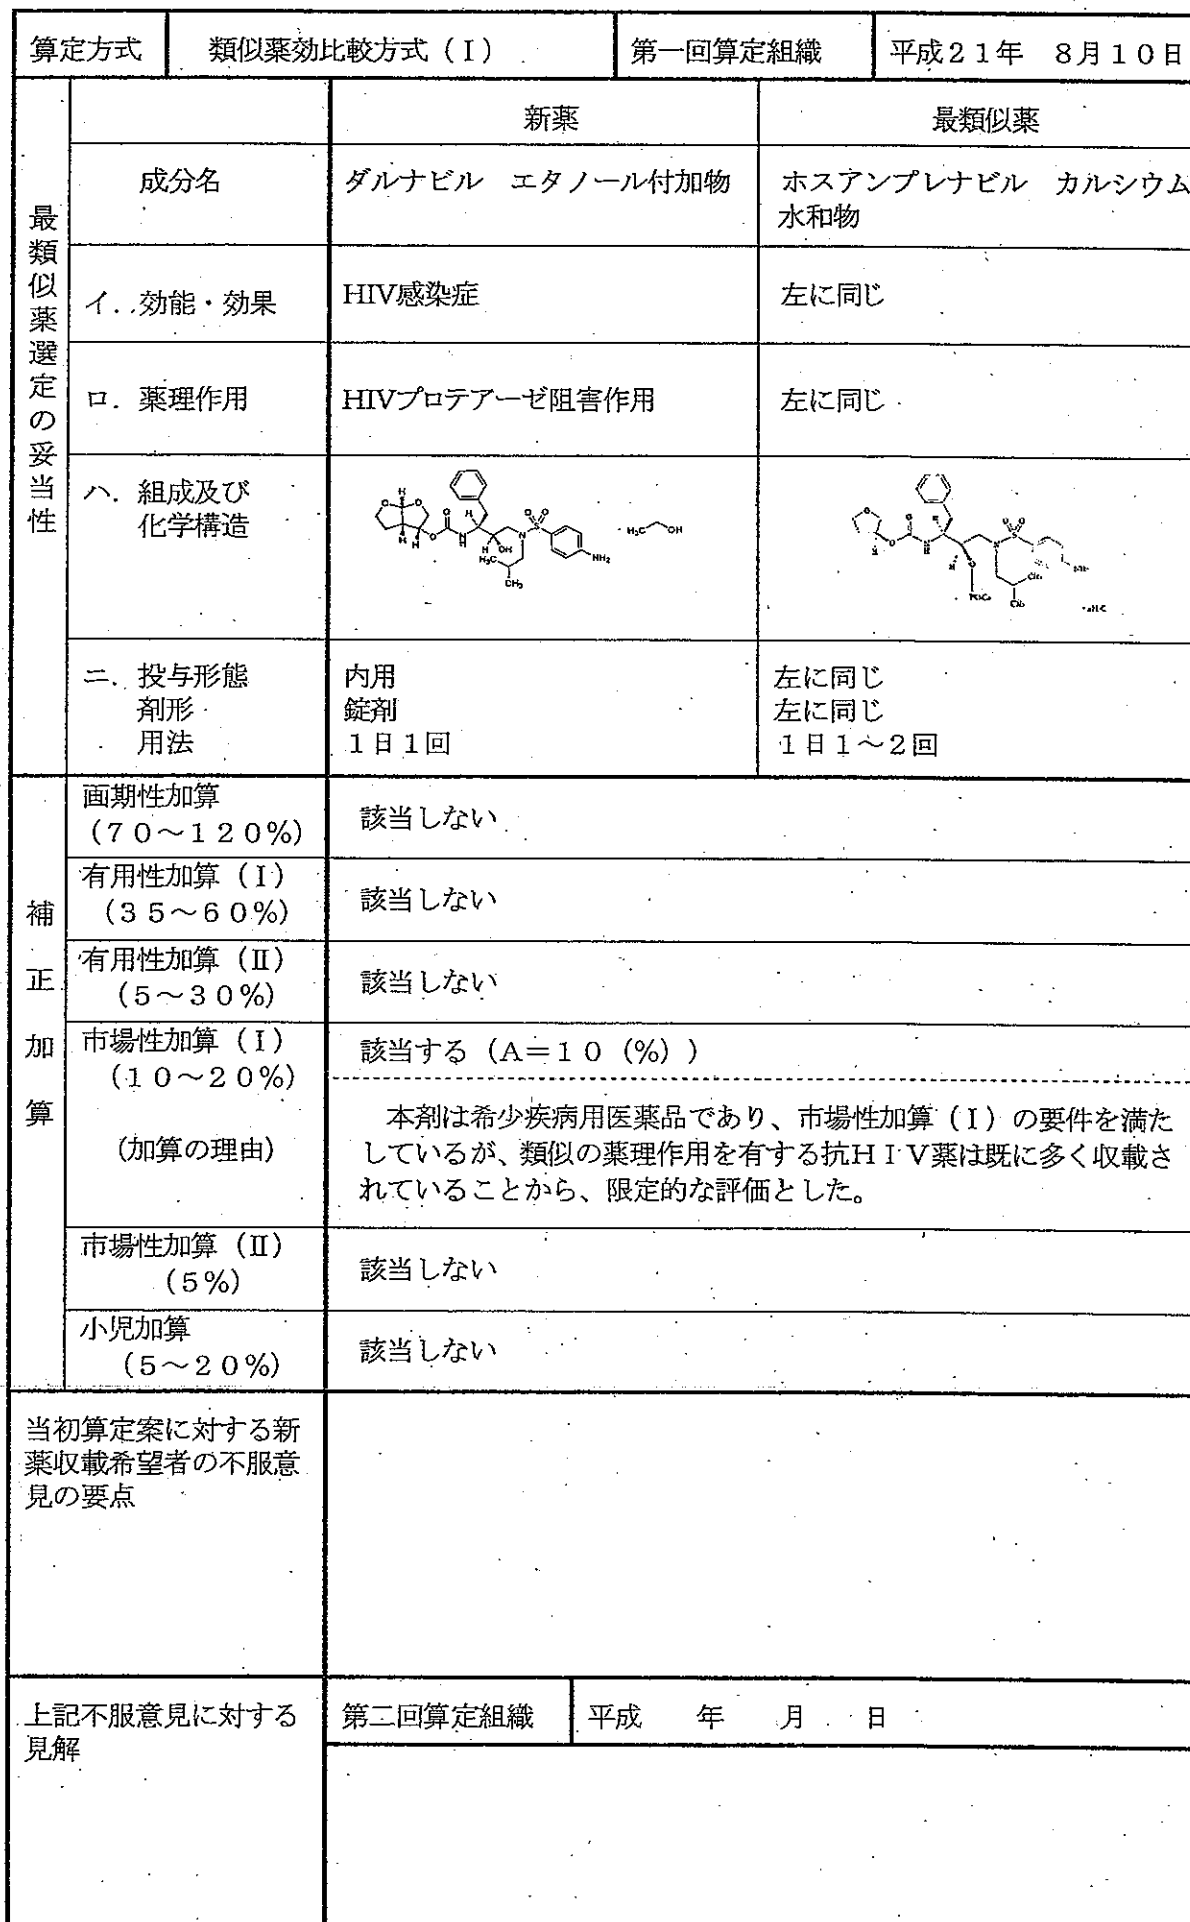 算定方式 類似薬効比較方式（Ⅰ） 第一回算定組織 平成２１年　８月１０日
新薬 最類似薬
最類似薬選定の妥当性
成分名 ダルナビル　エタノール付加物 ホスアンプレナビル　カルシウム
水和物
イ．効能・効果 HIV感染症 左に同じ
ロ．薬理作用 HIVプロテアーゼ阻害作用 左に同じ
ハ．組成及び
化学構造
ニ．投与形態 内用 左に同じ
剤形 錠剤 左に同じ
用法 １日１回 １日１～２回
補正加算
画期性加算
（７０～１２０％） 該当しない
有用性加算（Ⅰ）
（３５～６０％） 該当しない
有用性加算（Ⅱ）
（５～３０％） 該当しない
市場性加算（Ⅰ）
（１０～２０％）
該当する（Ａ＝１０（％））
（加算の理由）
本剤は希少疾病用医薬品であり、市場性加算（Ⅰ）の要件を満た
しているが、類似の薬理作用を有する抗ＨＩＶ薬は既に多く収載さ
れていることから、限定的な評価とした。
市場性加算（Ⅱ）
（５％） 該当しない
小児加算
（５～２０％） 該当しない
当初算定案に対する新
薬収載希望者の不服意
見の要点
上記不服意見に対する
見解
第二回算定組織 平成　　年　　月　　日